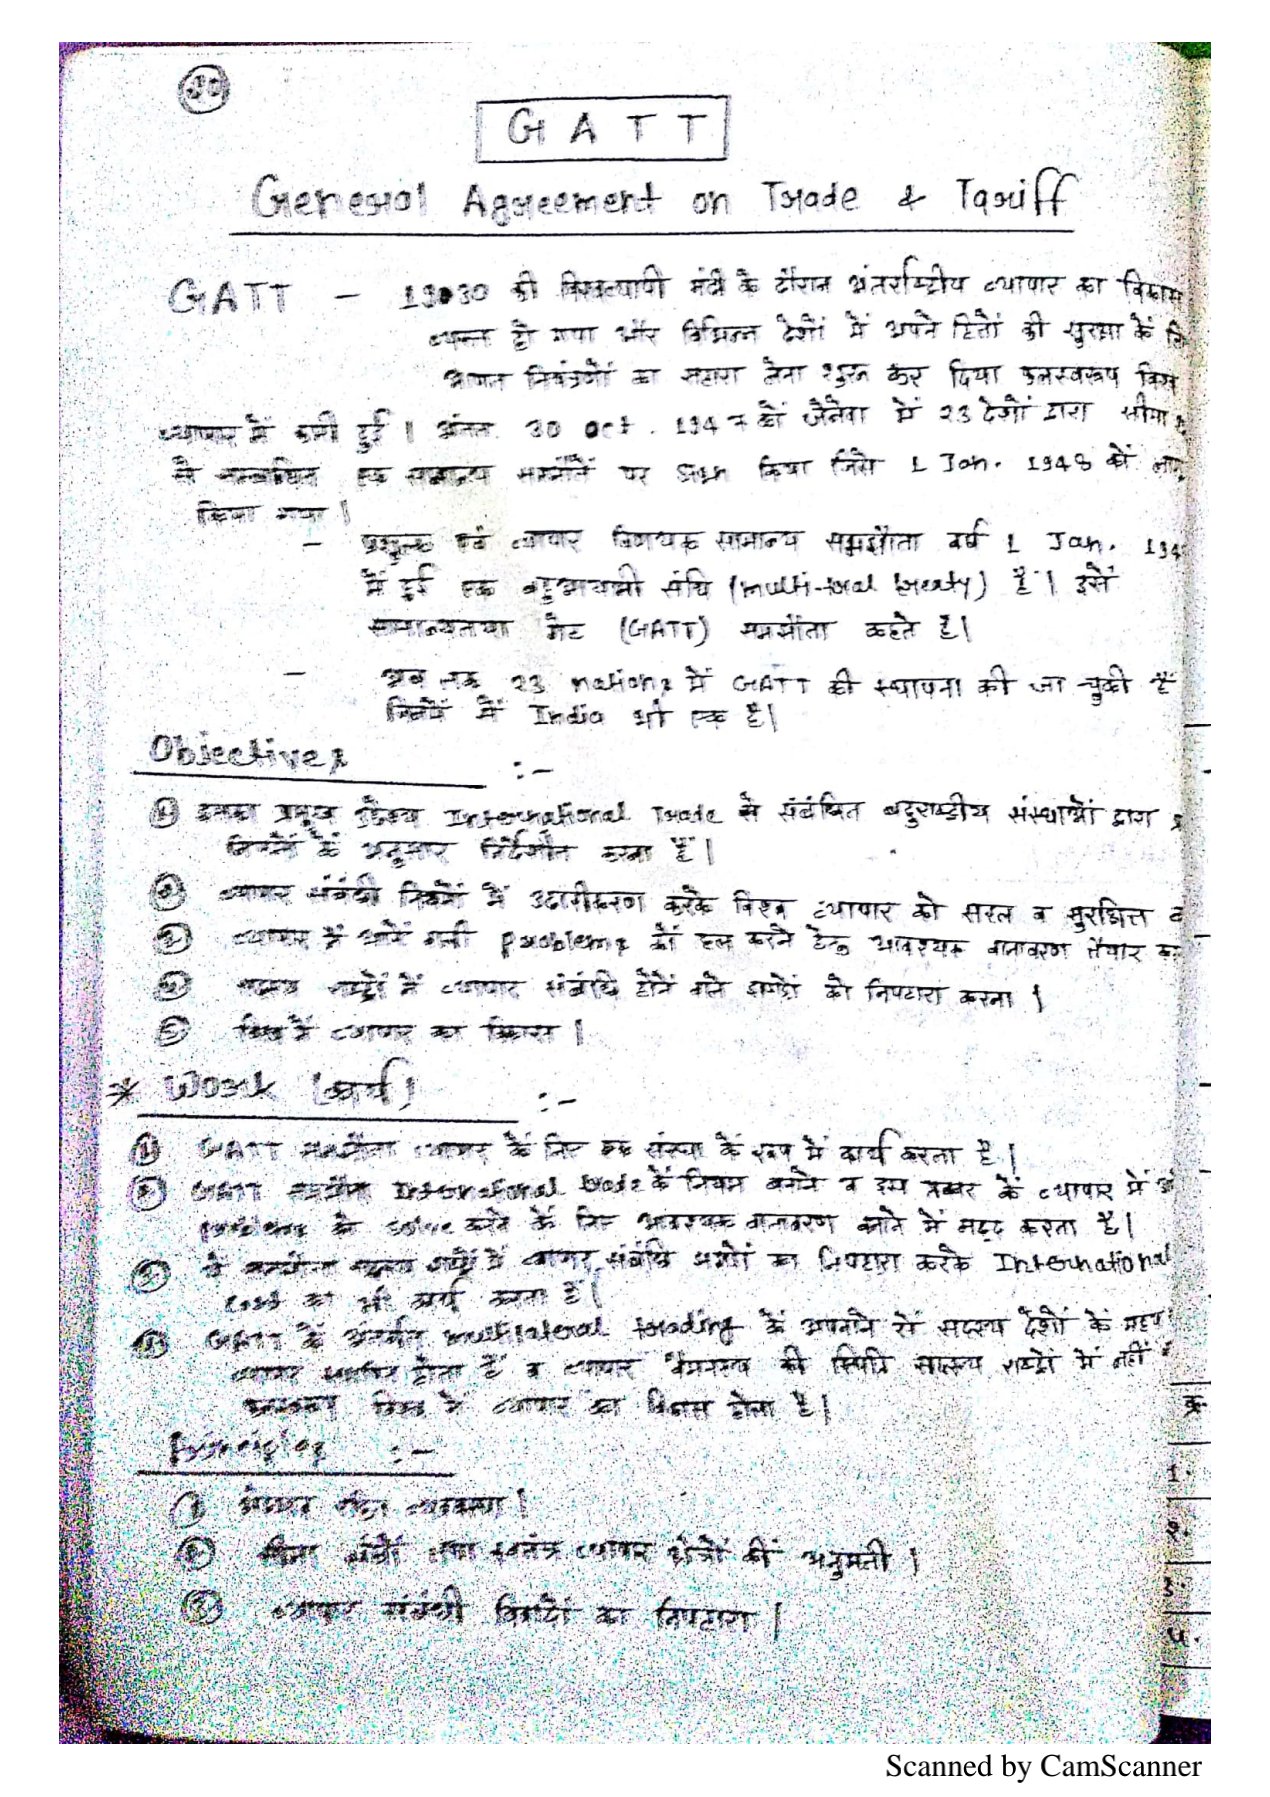 GATT
General Agreement on Trade & Tariff
GATT - 1930 की विश्वव्यापी मंदी के दौरान अंतर्राष्ट्रीय व्यापार का विकास
हो गया और विभिन्न देशों में अपने हितों की सुरक्षा के
नियंत्रणों का सहारा लेना शुरू कर दिया फलस्वरूप
व्यापार में कमी हुई । अंतत 30 oct. 1947 को जेनेवा में 23 देशों द्वारा सीमा
से सम्बंधित एक सामान्य समझौतें पर sign किया जिसे 1 Jan. 1948 को
किया गया |
- प्रशुल्क एवं व्यापार विषयक सामान्य समझौता वर्ष 1 Jan. 194
में हुई एक संधि (multi-toral treaty) है | इसे
सामान्यतया गेट (GATT) समझौता कहते है |
- अब तक 23 nations में GATT की स्थापना की जा चुकी हैं
में India भी एक है |
Objectives :-
① इसका प्रमुख उद्देश्य International Trade से संबंधित बहुराष्ट्रीय संस्थाओं द्वारा
नियमों के अनुसार निर्देशित करना हैं |
② व्यापार संबंधी नियमों में उदारीकरण करके विश्व व्यापार को सरल व सुरक्षित
③ व्यापार में आने वाली problems को हल करने हेतु आवश्यक वातावरण तैयार
④ राष्ट्रों में व्यापार संबंधि होने वाले झगड़ों को निपटारा करना |
⑤ विश्व में व्यापार का विकास |
* Work (कार्य) :-
① GATT समझौता व्यापार के लिए एक संस्था के रूप में कार्य करता है |
② GATT समझौता International trade के नियम बनाने व इस प्रकार के व्यापार में
problems को solve करने के लिए आवश्यक वातावरण बनाने में मदद करता है |
③ व्यापार संबंधि का निपटारा करके International
का भी कार्य करता है |
④ GATT के अंतर्गत multilateral trading के अपनाने से सदस्य देशों के
व्यापार होता है व व्यापार वैमनस्य की स्थिति सदस्य राष्ट्रों में नहीं
विश्व में व्यापार का विकास होता है |
Principles :-
① व्यवस्था |
② सीमा संघों तथा स्वतंत्र व्यापार क्षेत्रों की अनुमती |
③ व्यापार संबंधी विवादों का निपटारा |
क्र
1.
2.
3.
4.
Scanned by CamScanner